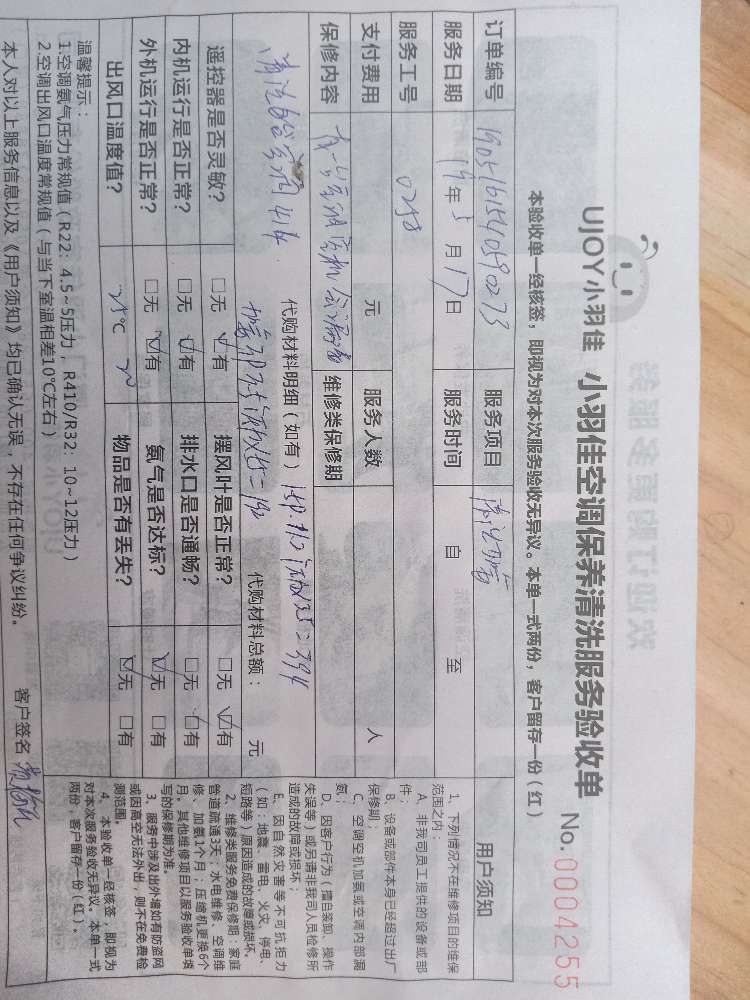 UJOY小羽佳 小羽佳空调保养清洗服务验收单 No.0004255
本验收单一经核签，即视为对本次服务验收无异议。本单一式两份，客户留存一份（红）
订单编号 1905161540590273 服务项目 清洗加氨
服务日期 19年5月17日 服务时间 自 至
服务工号 0250
支付费用 元 服务人数 人
保修内容 维修类保修期
代购材料明细（如有）
代购材料总额： 元
遥控器是否灵敏？ □无 ☑有 摆风叶是否正常？ □无 ☑有
内机运行是否正常？ □无 ☑有 排水口是否通畅？ □无 ☑有
外机运行是否正常？ □无 ☑有 氨气是否达标？ ☑无 □有
出风口温度值？ ℃ 物品是否有丢失？ ☑无 □有
温馨提示：
1.空调氨气压力常规值（R22：4.5~5压力，R410/R32：10~12压力）
2.空调出风口温度常规值（与当下室温相差10℃左右）
本人对以上服务信息以及《用户须知》均已确认无误，不存在任何争议纠纷。 客户签名
用户须知
1、下列情况不在维修项目的维保
范围之内：
A、非我司员工提供的设备或部
件；
B、设备或部件本身已经超过出厂
保修期；
C、空调空机加氨或空调内部漏
氨；
D、因客户行为（擅自装卸、操作
失误等）或另请非我司人员检修所
造成的故障或损坏；
E、因自然灾害等不可抗拒力
（如：地震、雷电、火灾、停电、
短路等）原因造成的故障或损坏。
2、维修类服务免费保修期：家庭
管道疏通3天；水电维修、空调维
修、加氨1个月；压缩机更换6个
月。其他维修项目以服务验收单填
写的保修期为准。
3、服务中涉及出外墙如有防盗网
或因高空无法外出，则不在免费检
测范围。
4、本验收单一经核签，即视为
对本次服务验收无异议。本单一式
两份，客户留存一份（红）。